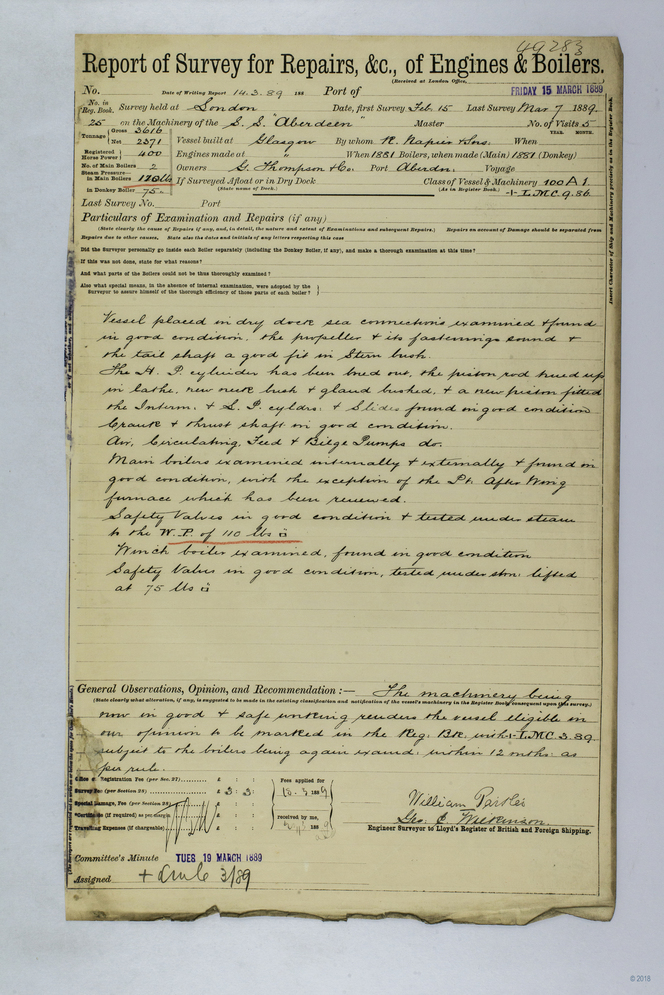 49283
Report of Survey for Repairs, &c., of Engines & Boilers.
(Received at London Office,
No. Date of Writing Report 14.3.89 188 Port of FRIDAY 15 MARCH 1889
No. in Reg. Book. Survey held at London Date, first Survey Feb. 15 Last Survey Mar 7 1889.
25 on the Machinery of the S.S. "Aberdeen" Master No. of Visits 5
Tonnage Gross 3616 Net 2371 Vessel built at Glasgow By whom R. Napier & Sons. When YEAR. MONTH.
Registered Horse Power 400 Engines made at " When 1881 Boilers, when made (Main) 1881 (Donkey)
No. of Main Boilers 2 Owners G. Thompson & Co. Port Aberdn. Voyage
Steam Pressure in Main Boilers 120 lb If Surveyed Afloat or in Dry Dock Class of Vessel & Machinery 100 A1.
in Donkey Boiler 75 (State name of Dock.) (As in Register Book.) + L.M.C. 9.86
Last Survey No. Port
Particulars of Examination and Repairs (if any)
(State clearly the cause of Repairs if any, and, in detail, the nature and extent of Examinations and subsequent Repairs.) Repairs on account of Damage should be separated from
Repairs due to other causes, State also the dates and initials of any letters respecting this case
Did the Surveyor personally go inside each Boiler separately (including the Donkey Boiler, if any), and make a thorough examination at this time?
If this was not done, state for what reasons?
And what parts of the Boilers could not be thus thoroughly examined?
Also what special means, in the absence of internal examination, were adopted by the
Surveyor to assure himself of the thorough efficiency of those parts of each boiler?
Vessel placed in dry dock sea connections examined & found
in good condition, the propeller & its fastenings sound &
the tail shaft a good fit in Stern bush.
The H. P. cylinder has been bored out, the piston rod trued up
in lathe, new neck bush & gland bushed, & a new piston fitted
the Interm: & L. P. cyldrs: & Slides found in good condition
Crank & thrust shaft in good condition.
Air, Circulating, Feed & Bilge Pumps do.
Main boilers examined internally & externally & found in
good condition, with the exception of the Pt. After Wing
furnace which has been renewed.
Safety Valves in good condition & tested under steam
to the W.P. of 110 lbs □
Winch boiler examined, found in good condition
Safety Valves in good condition, tested under stm: lifted
at 75 lbs □
General Observations, Opinion, and Recommendation :— The machinery being
(State clearly what alteration, if any, is suggested to be made in the existing classification and notification of the vessel's machinery in the Register Book consequent upon this survey.)
now in good & safe working renders the vessel eligible in
our opinion to be marked in the Reg: Bk. with + L.M.C 3.89.
subject to the boilers being again examd: within 12 mths: as
per rule.
Office or Registration Fee (per Sec. 27) £ : : Fees applied for
Survey Fee (per Section 28) £ 3 : 3 : 188 9
Special Damage, Fee (per Section 28) £ : :
*Certificate (if required) as per margin £ : : received by me,
Travelling Expenses (if chargeable) £ : : 188
William Parker
Geo. C. Wilkinson
Engineer Surveyor to Lloyd's Register of British and Foreign Shipping.
Committee's Minute TUES. 19 MARCH 1889
Assigned + Lmc 3/89
Insert Character of Ship and Machinery precisely as in the Register Book.
© 2018